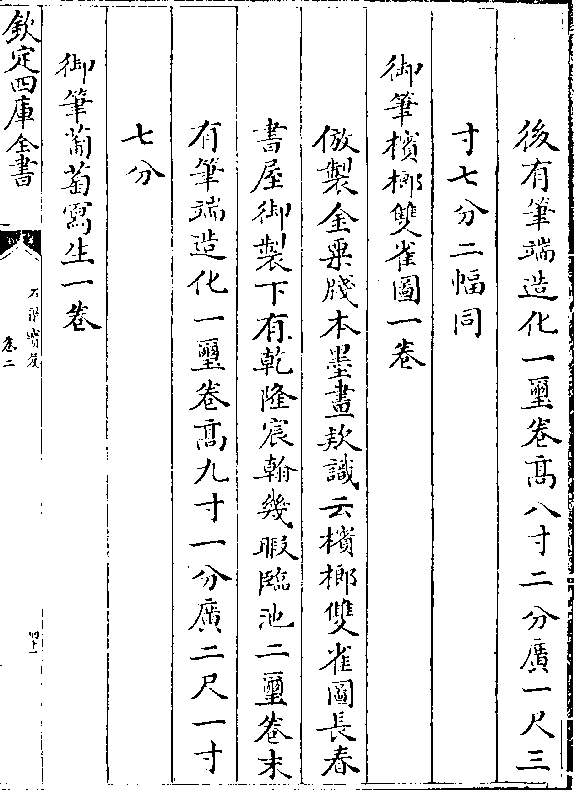 後有筆端造化一璽卷髙八寸二分廣一尺三
寸七分二幅同
御筆檳榔雙雀圖一卷
倣製金粟牋本墨畫款識云檳榔雙雀圖長春
書屋御製下有乾隆宸翰幾暇臨池二璽卷末
有筆端造化一璽卷髙九寸一分廣二尺一寸
七分
御筆葡萄寫生一卷
欽定四庫全書
石渠寳笈
卷二
四十一